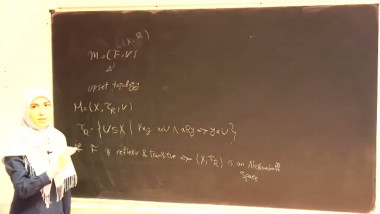 (X,R)
M=(F,V)
upset topology
M=(X,τ_R,V)
τ_R={U⊆X | ∀x,y x∈U ∧ xRy ⇒ y∈U}
F is reflexive & transitive ⇔ (X,τ_R) is an Alexandroff
space